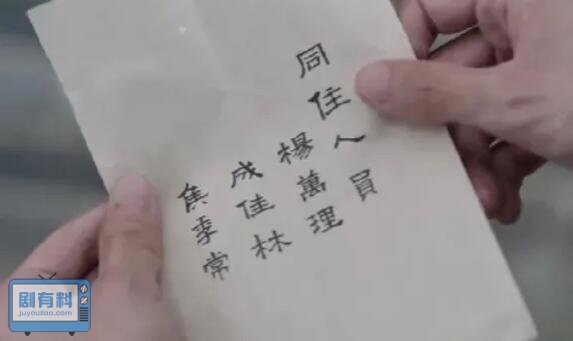 同住人員
楊萬理
成佳林
焦季常
剧有料
juyouliao.com